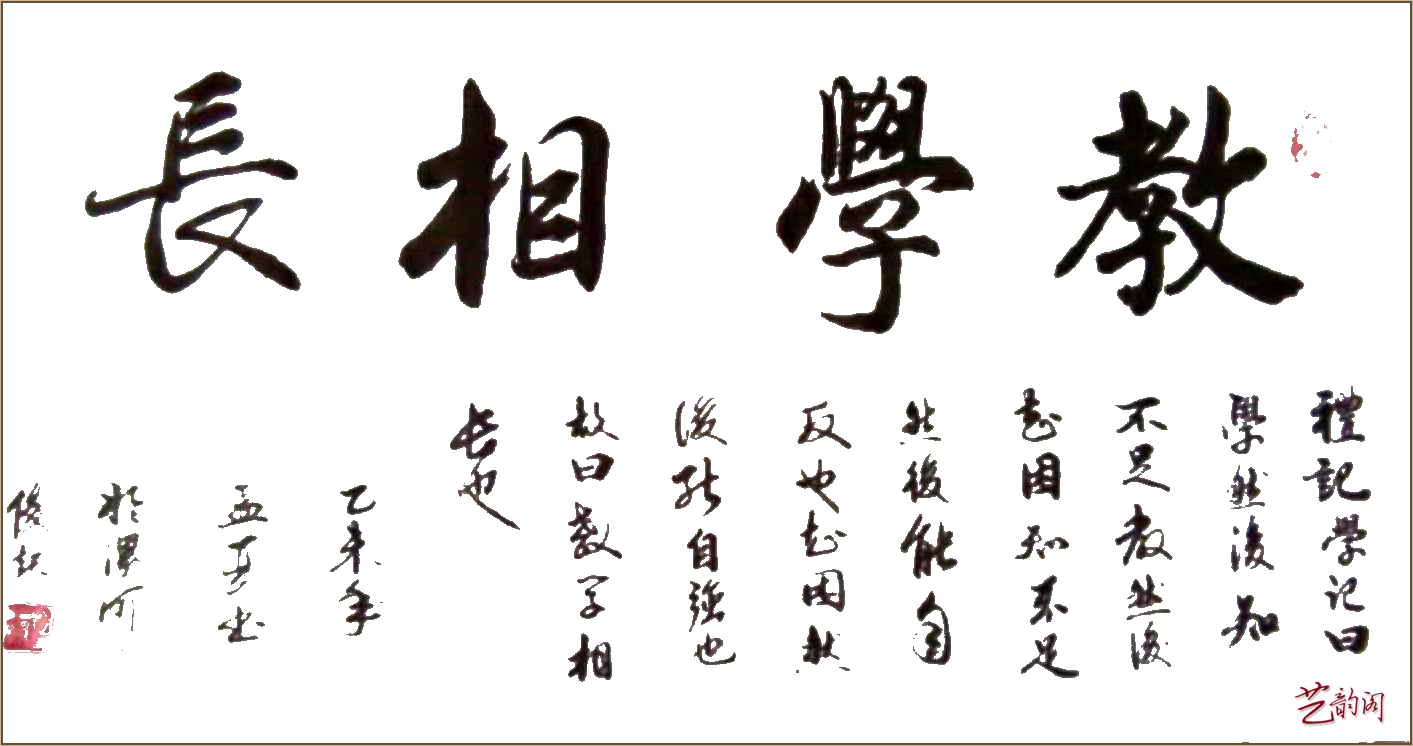 教學相長
禮記學记曰
學然後知
不足教然後
知困知不足
然後能自
反也知困然
後能自強也
故曰教学相
长也
乙未年
孟夏书
於漯河
艺韵阁